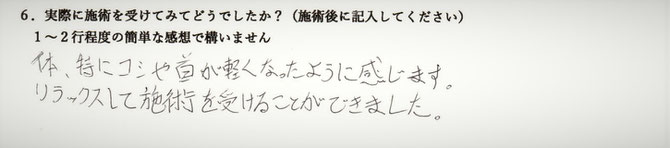 6．実際に施術を受けてみてどうでしたか？（施術後に記入してください）
1～2行程度の簡単な感想で構いません
体、特にコシや首が軽くなったように感じます。
リラックスして施術を受けることができました。